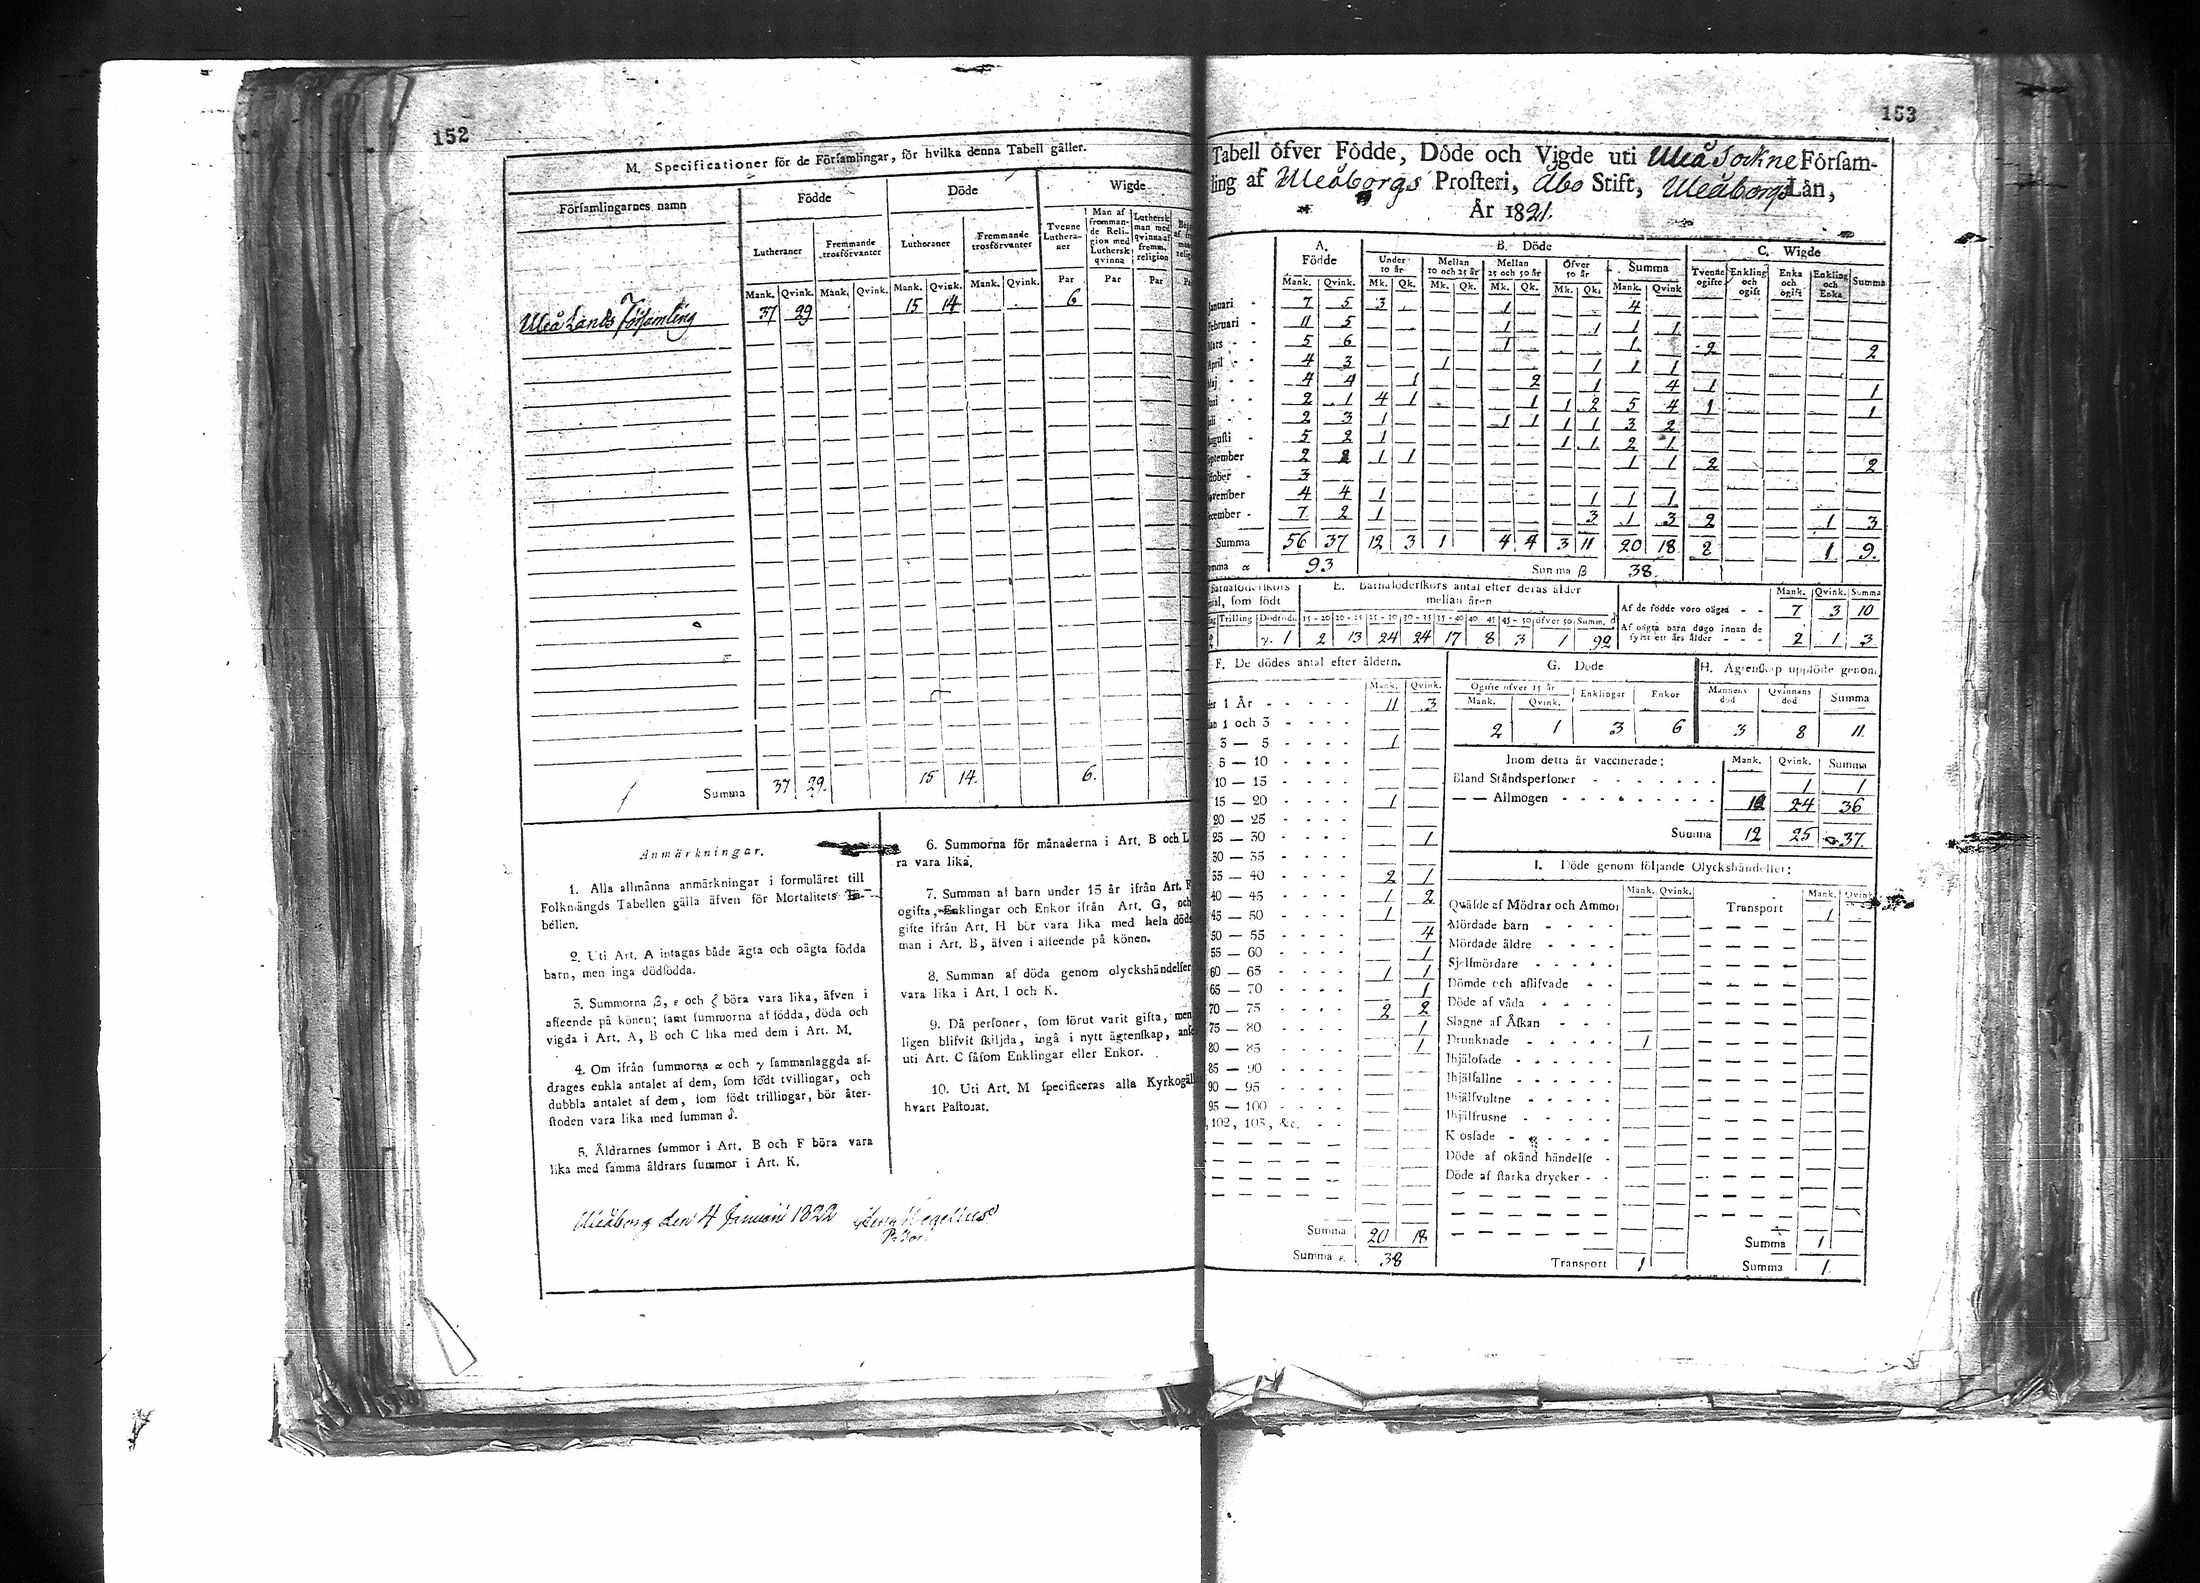 152
M. Specificationer för de Församlingar, för hvilka denna Tabell gäller.
Församlingarnes namn
Födde
Döde
Wigde
Lutheraner
Fremmande trosförvanter
Lutheraner
Fremmande trosförvanter
Tvenne Lutheraner
Man af frommande Religion med Luthersk qvinna
Luthersk man med qvinna af fremm. religion
Mank. Qvink. Mank. Qvink. Mank. Qvink. Mank. Qvink. Par Par Par
Uleå Lands Församling 37 29 15 14 6
Summa 37 29. 15 14. 6.
Anmärkningar.
1. Alla allmänna anmärkningar i formuläret till
Folkmängds Tabellen gälla äfven för Mortalitets Ta-
bellen.
2. Uti Art. A intagas både ägta och oägta födda
barn, men inga dödfödda.
3. Summorna β, ε och ζ böra vara lika, äfven i
afseende på könen; samt summorna af födda, döda och
vigda i Art. A, B och C lika med dem i Art. M.
4. Om ifrån summorna α och γ sammanlaggda af-
drages enkla antalet af dem, som födt tvillingar, och
dubbla antalet af dem, som födt trillingar, bör åter-
stoden vara lika med summan δ.
5. Åldrarnes summor i Art. B och F böra vara
lika med samma åldrars summor i Art. K.
6. Summorna för månaderna i Art. B och L
ra vara lika.
7. Summan af barn under 15 år ifrån Art. F
ogifta, Enklingar och Enkor ifrån Art. G, och
gifte ifrån Art. H bör vara lika med hela döds
man i Art. B, äfven i afseende på könen.
8. Summan af döda genom olyckshändelser
vara lika i Art. I och K.
9. Då personer, som förut varit gifta, men
ligen blifvit skiljda, ingå i nytt ägtenskap,
uti Art. C såsom Enklingar eller Enkor.
10. Uti Art. M specificeras alla Kyrkogäl
hvart Pastorat.
Uleåborg den 4 Januarii 1822
Pastor.
153
Tabell öfver Födde, Döde och Vigde uti Uleå Sockne Försam-
ling af Uleåborgs Prosteri, Åbo Stift, Uleåborgs Län,
År 1821.
A. Födde
B. Döde
C. Wigde
Under 10 år
Mellan 10 och 25 år
Mellan 25 och 50 år
Öfver 50 år
Summa
Tvenne ogifte
Enkling och ogift
Enka och ogift
Enkling och Enka
Summa
Mank. Qvink. Mk. Qk. Mk. Qk. Mk. Qk. Mk. Qk. Mank. Qvink
Januari 7 5 3 1 4
Februari 11 5 1 1 1 1
Mars 5 6 1 1 2 2
April 4 3 1 1 1 1
Maj 4 4 1 2 1 4 1 1
Juni 2 1 4 1 1 1 2 5 4 1 1
Juli 2 3 1 1 1 1 1 3 2
Augusti 5 2 1 1 1 2 1
September 2 2 1 1 1 1 2 2
October 3
November 4 4 1 1 1 1
December 7 2 1 3 1 3 2 1 3
Summa 56 37 12 3 1 4 4 3 11 20 18 2 1 9.
Summa α 93 Summa β 38.
Barnaföderskors
antal, som födt
Trilling Dödfödt
2 γ. 1
E. Barnaföderskors antal efter deras ålder
mellan åren
15-20 20-25 25-30 30-35 35-40 40-45 45-50 öfver 50 Summ. δ
2 13 24 24 17 8 3 1 92
Mank. Qvink. Summa
Af de födde voro oägta 7 3 10
Af oägta barn dogo innan de
fyllt ett års ålder 2 1 3
F. De dödes antal efter åldern.
Mank. Qvink.
1 År 11 3
1 och 3
3 — 5 1
5 — 10
10 — 15
15 — 20 1
20 — 25
25 — 30 1
30 — 35
35 — 40 2 1
40 — 45 1 2
45 — 50 1
50 — 55 4
55 — 60 1
60 — 65 1 1
65 — 70 1
70 — 75 2 2
75 — 80 1
80 — 85 1
85 — 90
90 — 95
95 — 100
102, 103, &c.
Summa 20 18
Summa ε 38
G. Döde
Ogifte öfver 15 år Enklingar Enkor
Mank. Qvink.
2 1 3 6
H. Ägtenskap upplöste genom
Mannens död Qvinnans död Summa
3 8 11
Inom detta år vaccinerade: Mank. Qvink. Summa
Bland Ståndspersoner 1 1
— — Allmogen 12 24 36
Summa 12 25 37.
I. Döde genom följande Olyckshändelser:
Mank. Qvink. Mank. Qvink
Qwäfde af Mödrar och Ammor
Mördade barn
Mördade äldre
Sjelfmördare
Dömde och aflifvade
Döde af våda
Slagne af Åskan
Drunknade 1
Ihjälosade
Ihjälfallne
Ihjälsvultne
Ihjälfrusne
Krossade
Döde af okänd händelse
Döde af starka drycker
Transport 1
Transport 1
Summa 1
Summa 1.